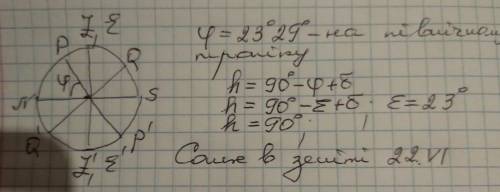 Z ℰ
P
Q
φ
N
S
Q'
P'
Z' ℰ'
φ = 23°29° – на північному
тропіку
h = 90° – φ + δ
h = 90° – ε + δ ε = 23°
h = 90°
Сонце в зеніті 22.VI